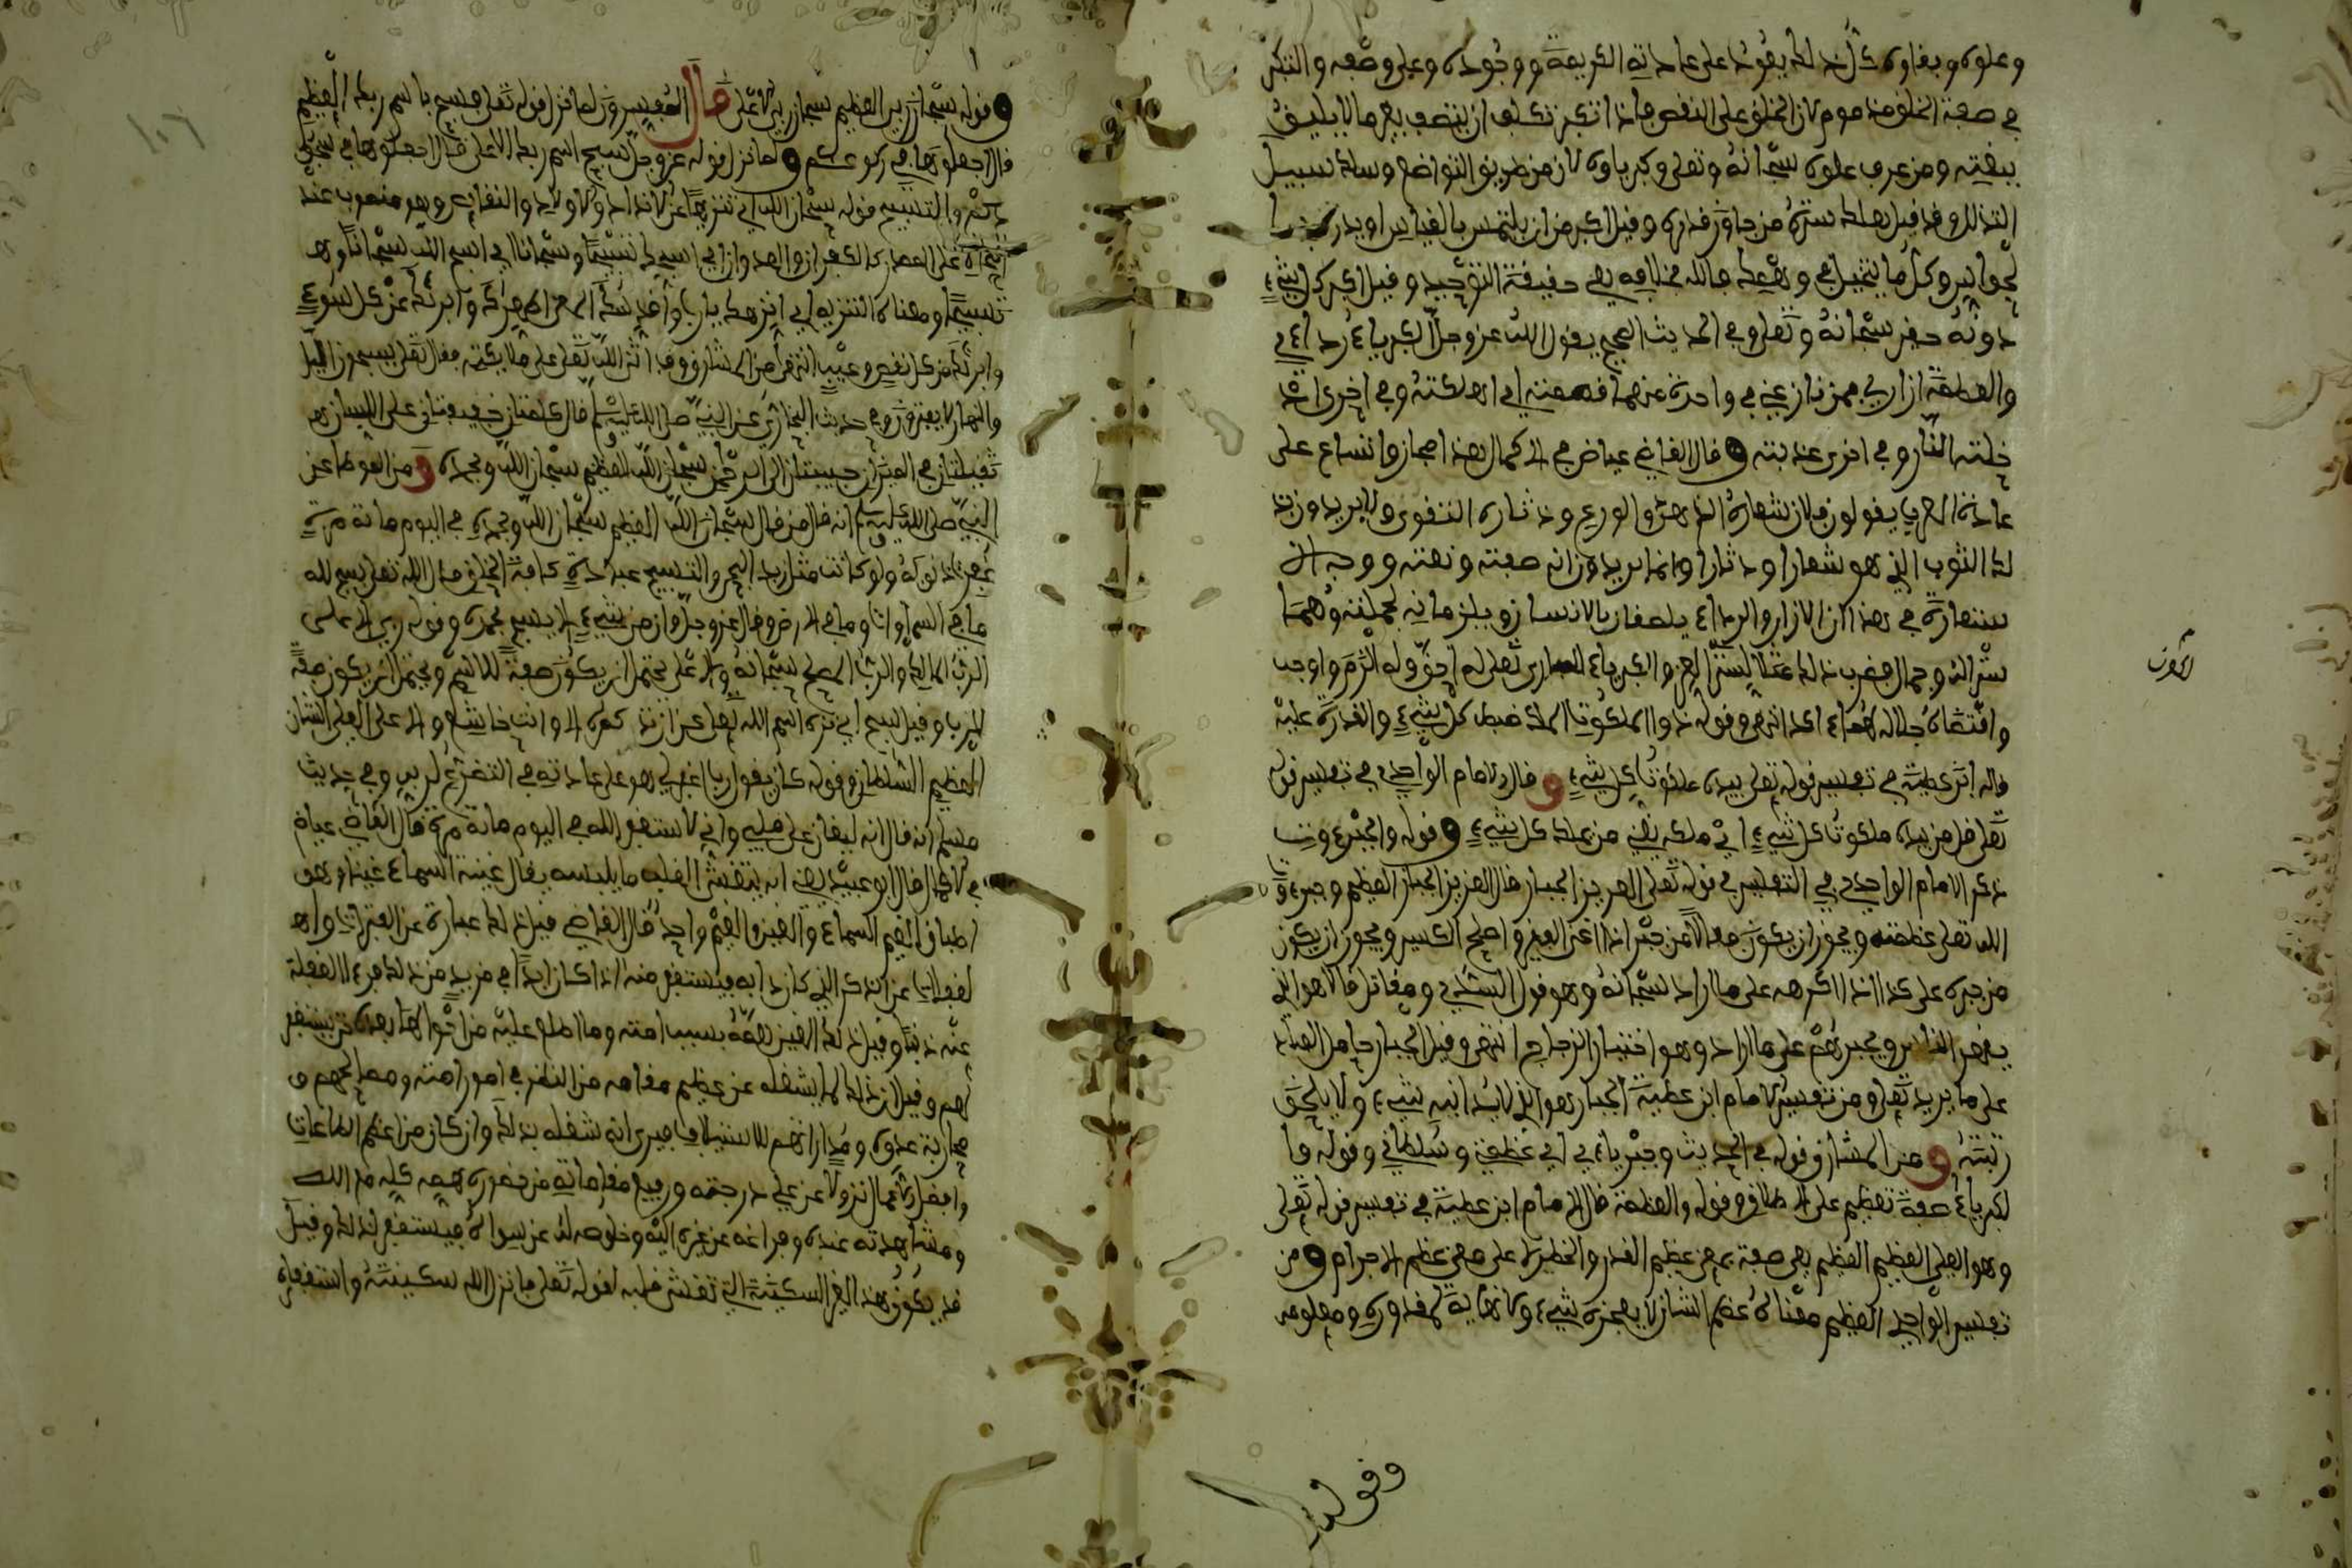 وعلوه وبقاوه كل ذلك يعود على عادته الكريمة ووجوده وعلى وصفه والتكبر
في صفة الخلق مذموم لان الخلق على النقص فاذا تكبر تكلف ان يتصف بغير ما لا يليق
بصفته ومن عرف علوه سبحانه وتعلى وكبرياوه لازم طريق التواضع وسلك سبيل
التذلل وقد قيل هلك ستره من جاوز قدره وقيل اكبر من ان يلتمس بالقياس او يدرك
بالحواس وكل ما يتخيل في وهمك فالله بخلافه هي حقيقة التوحيد وقيل اكبر كل شيء
دونه حقير سبحانه وتعلى وفي الحديث الصحيح يقول الله عز وجل الكبرياء رداءي
والعظمة ازاري فمن نازعني في واحدة منهما قصمته اي اهلكته وفي اخرى اد
خلته النار وفي اخرى عذبته وقال القاضي عياض في الاكمال هذا مجاز واتساع على
عادة العرب يقولون فلان شعاره الزهد والورع ودثاره التقوى ولا يريدون بذ
لك الثوب الذي هو شعار او دثار وانما يريدون انه صفته ونعته ووجه الا
ستعارة في هذا ان الازار والرداء يلصقان بالانسان ويلزمانه بجملته وهما
ستر له وجمال فضرب ذلك مثلا لستر العز والكبرياء للباري تعلى له احق وله الزم واوجب
واقتضاه جلاله هما اكد انتهى وقوله ذو الملكوت الملك ضبط كل شيء والقدرة عليه
قاله ابن عطية في تفسير قوله تعلى بيده ملكوت كل شيء وقال الامام الواحدي في تفسير قوله
تعلى قل من بيده ملكوت كل شيء اي ملكه يعني من يملك كل شيء وقوله والجبروت
ذكر الامام الواحدي في التفسير في قوله تعلى العزيز الجبار قال العزيز الجبار العظيم وجبروت
الله تعلى عظمته ويجوز ان يكون فعالا من جبر اذا اغنى الفقير واصلح الكسير ويجوز ان يكون
من جبره على كذا اذا اكرهه على ما اراد سبحانه وهو قول السدي ومقاتل قالا هو الذي
يقهر الناس ويجبرهم على ما اراد وهو اختيار الزجاج انتهى وقيل الجبار حامل العباد
على ما يريد تعلى ومن تفسير الامام ابن عطية الجبار هو الذي لا يدانيه شيء ولا يلحق
رتبته ومن المشارق قوله في الحديث وجبرياءي اي عظمتي وسلطاني وقوله وا
لكبرياء صفة تعظيم على الاطلاق وقوله والعظمة قال الامام ابن عطية في تفسير قوله تعلى
وهو العلي العظيم العظيم هي صفة بمعنى عظيم القدر والخطر لا على معنى عظم الاجرام ومن
تفسير الواحدي العظيم معناه عظيم الشان لا يعجزه شيء ولا نهاية لمقدوره ومعلومه
وقوله
وقوله سبحان ربي العظيم سبحان ربي الاعلى قال المفسرون لما نزل قوله تعلى فسبح باسم ربك العظيم
قال اجعلوها في ركوعكم ولما نزل قوله عز وجل سبح اسم ربك الاعلى قال اجعلوها في سجود
كم والتسبيح قوله سبحان الله اي تنزيها عن الانداد والاولاد والنقائص وهو منصوب عند
النحاة على المصدر كالكفران والعدوان اي اسبحك تسبيحا وسبحانا اي اسبح الله سبحانا وهو
تسبيحا ومعناه التنزيه اي انزهك يا رب واقدسك وابرئك عن كل سوء
وابرئك من كل نقص وعيب انتهى من المشارق وقد اثنى الله تعلى على ملائكته فقال تعلى يسبحون الليل
والنهار لا يفترون وفي حديث البخاري عن النبي صلى الله عليه وسلم قال كلمتان خفيفتان على اللسان
ثقيلتان في الميزان حبيبتان الى الرحمن سبحان الله العظيم سبحان الله وبحمده ومن الموطا عن
النبي صلى الله عليه وسلم انه قال من قال سبحان الله العظيم سبحان الله وبحمده في اليوم مائة مرة
غفرت ذنوبه ولو كانت مثل زبد البحر والتسبيح عبادة كافة الخلق قال الله تعلى يسبح لله
ما في السماوات وما في الارض وقال عز وجل وان من شيء الا يسبح بحمده وقوله ربي الاعلى
الرب المالك والرب المصلح سبحانه والاعلى يحتمل ان يكون صفة للاسم ويحتمل ان يكون صفة
للرب وقيل سبح اي نزه اسم الله تعلى عن ان تذكره الا وانت خاشع والاعلى العلي الشان
العظيم السلطان وقوله كان يقول رب اغفر لي هو على عادته في التضرع لربه وفي حديث
مسلم انه قال انه ليغان على قلبي واني لاستغفر الله في اليوم مائة مرة قال القاضي عياض
في الاكمال قال ابو عبيد يعني انه يتغشى القلب ما يلبسه يقال غينت السماء غينا وهو
اطباق الغيم السماء والغين والغيم واحد قال القاضي قيل ذلك عبارة عن الفترات وا
لغفلات عن الذكر الذي كان دابه فيستغفر منه اذا كان ابدا في مزيد من ذلك فرءا الغفلة
عنه ذنبا وقيل ذلك الغين همه بسبب امته وما اطلع عليه من احوالها بعده حتى يستغفر
لهم وقيل ان ذلك لما يشغله عن عظيم مقامه من النظر في امور امته ومصالحهم و
محاربة عدوه ومداراتهم للاستيلاف فيرى انه شغله بذلك وان كان من اعظم الطاعات
وافضل الاعمال نزولا عن علي درجته ورفيع مقاماته من حضوره بهمه كله مع الله
ومشاهدته عنده وفراغه عن غيره اليه وخلوصه له عن سواه فيستغفر لذلك وقيل
قد يكون هذا الغين السكينة التي تغشى قلبه لقوله تعلى فانزل الله سكينته واستغفاره